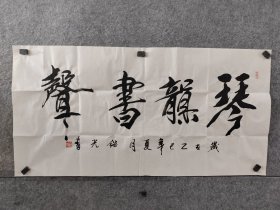 琴韻書聲
歲在乙巳年夏月 光書